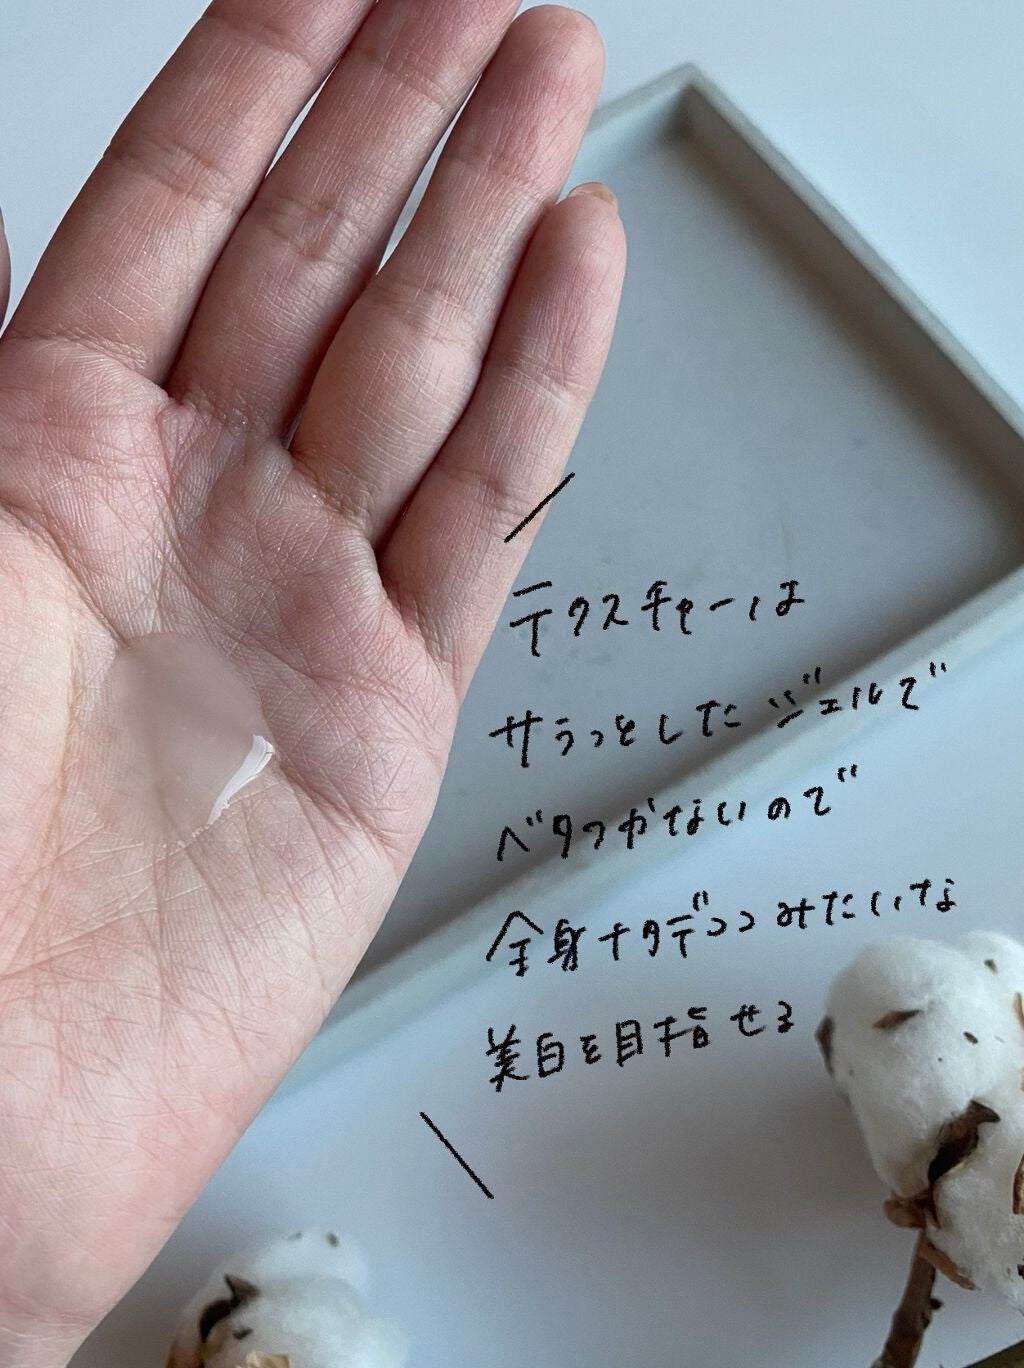 テクスチャーは
サラっとしたジェルで
ベタつかないので
全身ナタデココみたいな
美白を目指せる